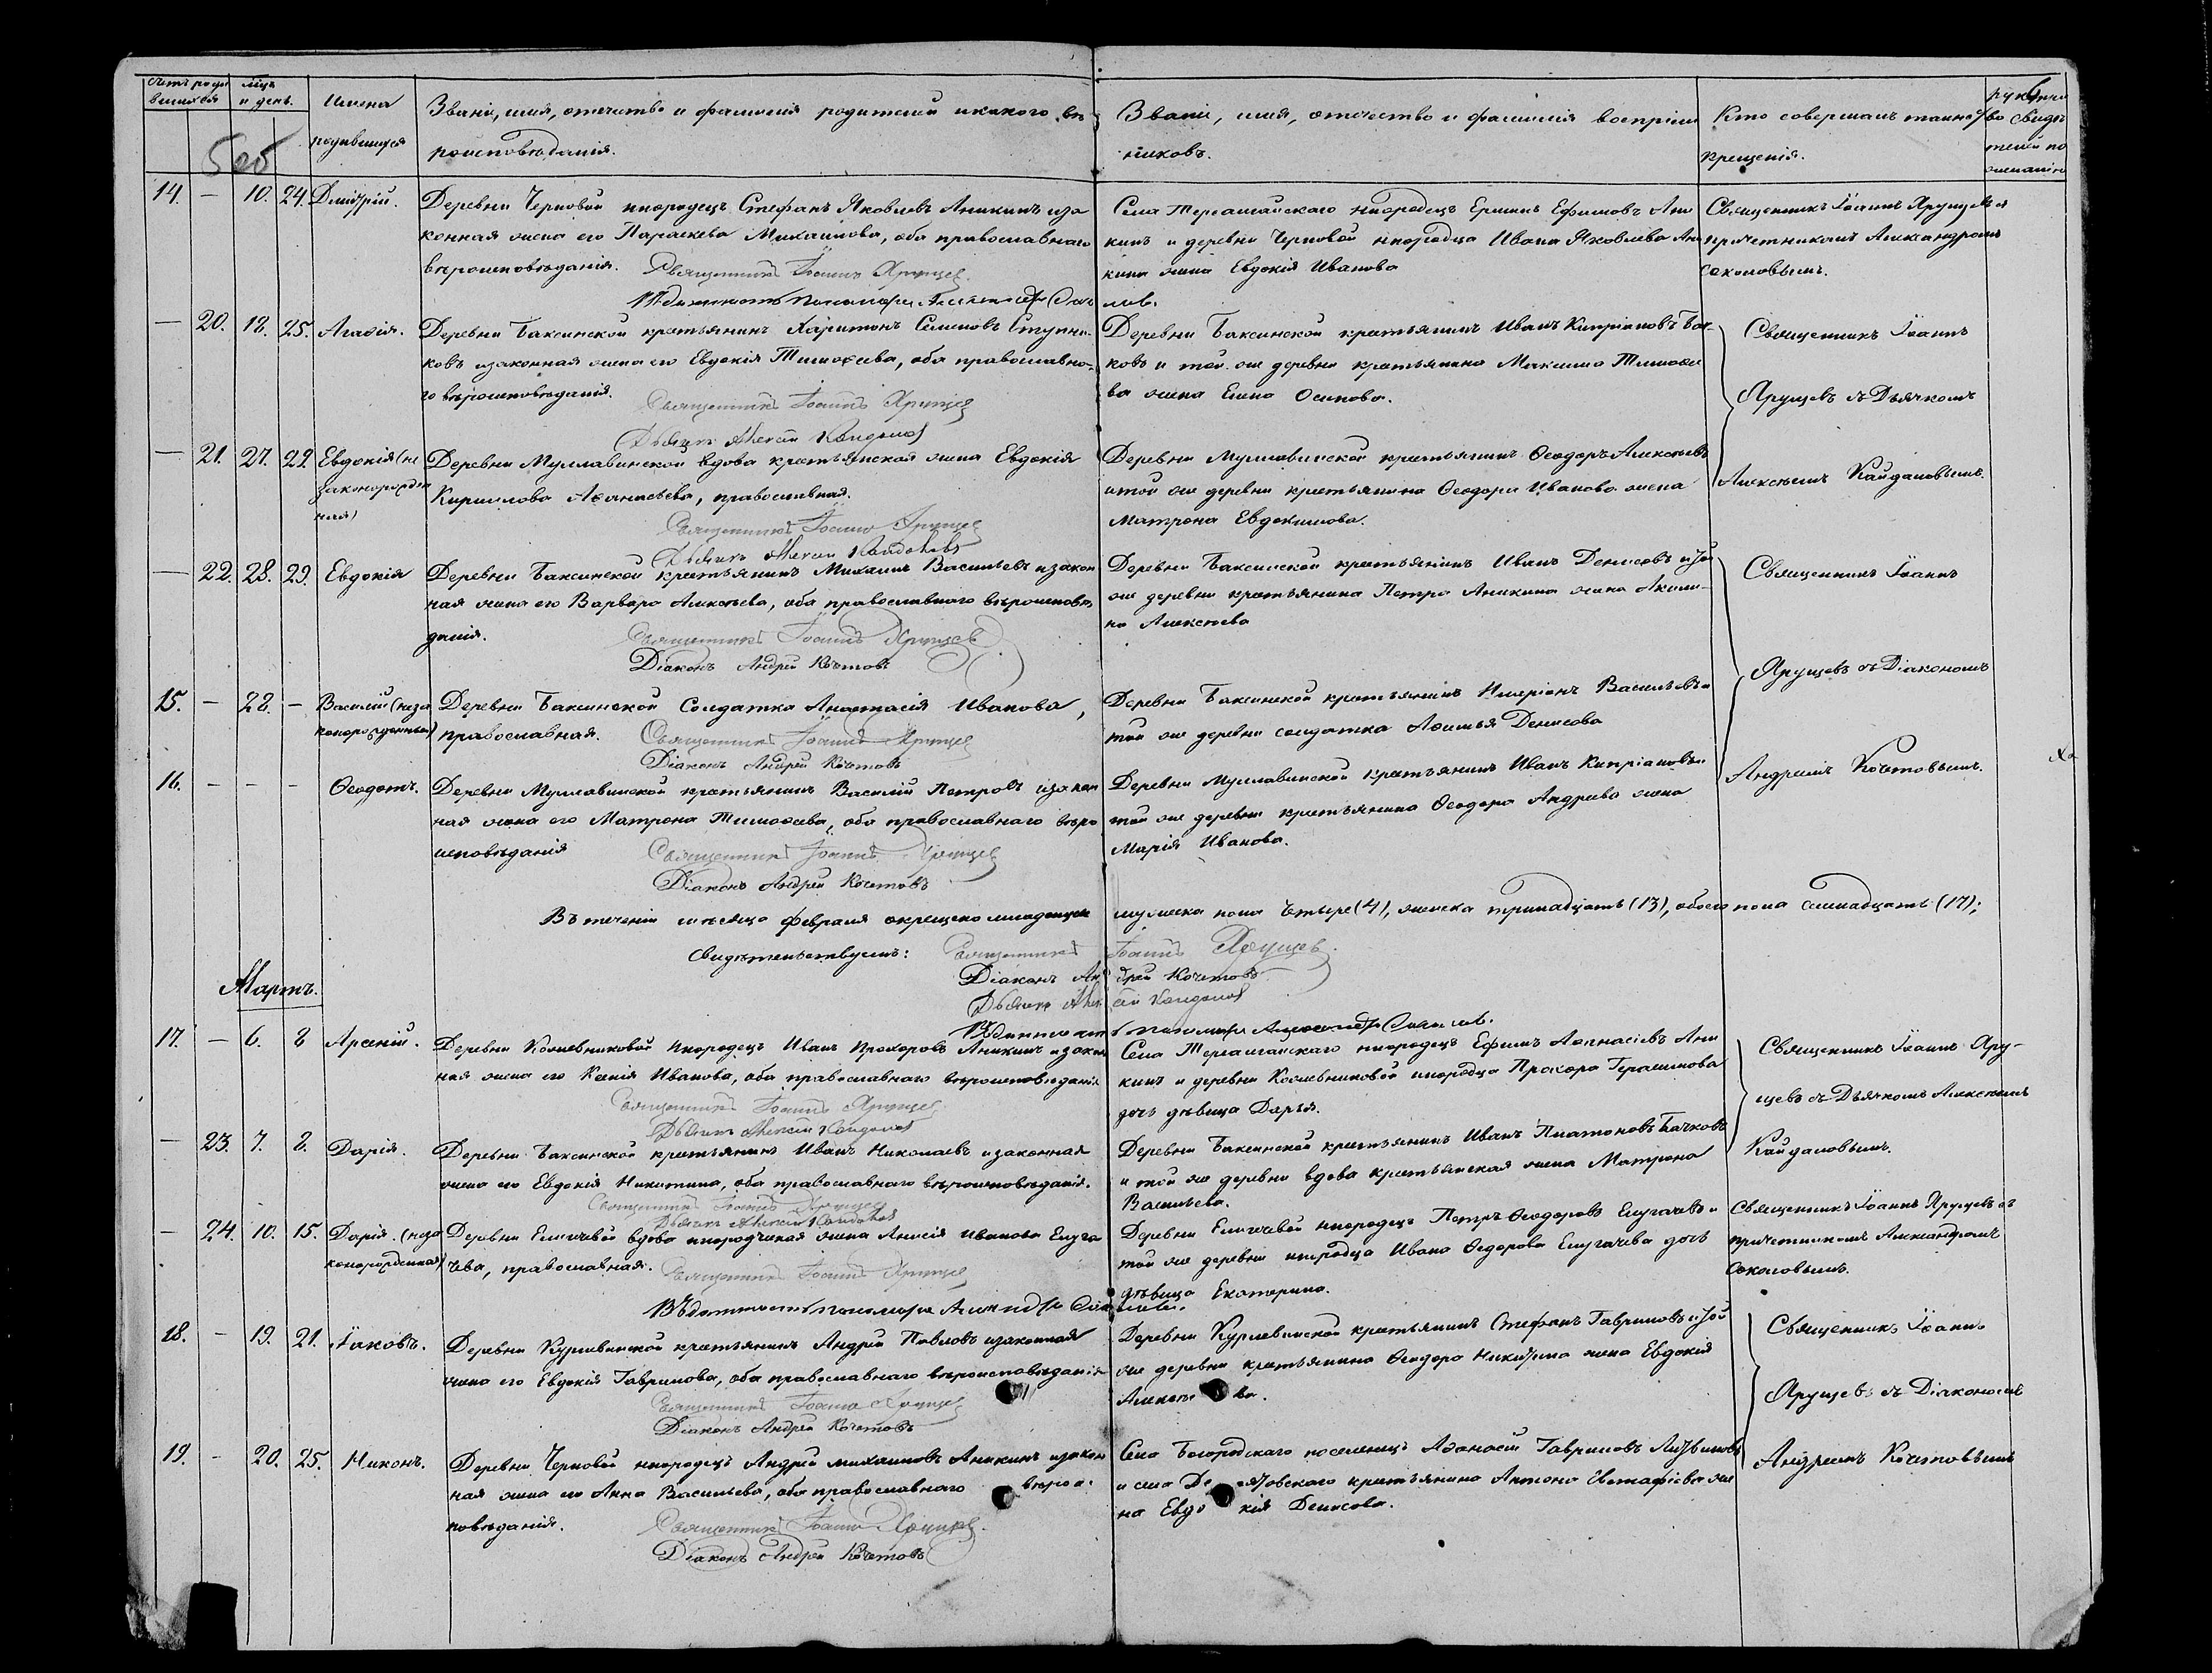 Счетъ роди
вшихся
мѣц.
и день.
Имена
родившихся
Званіе, имя, отчество и фамилія родителей и какого вѣ
роисповѣданія.
Званіе, имя, отчество и фамилія воспріем
никовъ.
Кто совершалъ таинство
крещенія.
14. — 10. 24. Димитрій.
Деревни Черновой инородецъ Стефанъ Яковлевъ Аникинъ и за
конная жена его Параскева Михаилова, оба православнаго
вѣроисповѣданія. Священникъ Іоаннъ Хрущевъ
Села Тергалинскаго инородецъ Ефимовъ Ани
кинъ и деревни Черновой инородца Ивана Яковлева Ани
кина жена Евдокія Иванова
Священникъ Іоаннъ Хрущевъ съ
причетникомъ Александромъ
Соколовымъ.
— 20. 18. 25. Агафія.
Деревни Баксинской крестьянинъ Харитонъ Семеновъ Ступни-
ковъ и законная жена его Евдокія Тимофеева, оба православна-
го вѣроисповѣданія. Священникъ Іоаннъ Хрущевъ
Дьячекъ Алексѣй Кайдаловъ
Деревни Баксинской крестьянинъ Иванъ Кипріановъ Бач-
ковъ и той же деревни крестьянина Максима Тимофее
ва жена Елена Осипова.
Священникъ Іоаннъ
Хрущевъ съ Дьячкомъ
Алексѣемъ Кайдаловымъ.
— 21. 27. 29. Евдокія (не
законорожден
ная)
Деревни Муллавинской вдова крестьянская жена Евдокія
Кирилова Афанасьева, православная.
Священникъ Іоаннъ Хрущевъ
Дьячекъ Алексѣй Кайдаловъ
Деревни Муллавинской крестьянинъ Ѳеодоръ Алексѣевъ
и той же деревни крестьянина Ѳеодора Иванова жена
Матрона Евдокимова.
— 22. 28. 29. Евдокія
Деревни Баксинской крестьянинъ Михаилъ Васильевъ и закон
ная жена его Варвара Алексѣева, оба православнаго вѣроисповѣ
данія. Священникъ Іоаннъ Хрущевъ
Діаконъ Андрей Кочетовъ
Деревни Баксинской крестьянинъ Иванъ Денисовъ и той
же деревни крестьянина Петра Аникина жена Акили-
на Алексѣева
Священникъ Іоаннъ
Хрущевъ съ Діакономъ
Андреемъ Кочетовымъ.
15. — 28. — Василій (неза
конорожденный)
Деревни Баксинской Солдатка Анастасія Иванова,
православная. Священникъ Іоаннъ Хрущевъ
Діаконъ Андрей Кочетовъ
Деревни Баксинской крестьянинъ Иларіонъ Васильевъ и
той же деревни солдатка Афимья Денисова
16. — — — Ѳеодотъ.
Деревни Муллавинской крестьянинъ Василій Петровъ и закон
ная жена его Матрона Тимофеева, оба православнаго вѣро
исповѣданія Священникъ Іоаннъ Хрущевъ
Діаконъ Андрей Кочетовъ
Деревни Муллавинской крестьянинъ Иванъ Кипріановъ и
той же деревни крестьянина Ѳеодора Андреева жена
Марія Иванова.
Въ теченіи мѣсяца февраля окрещено младенцевъ мужеска пола четыре (4), женска тринадцать (13), обоего пола семнадцать (17);
свидѣтельствуемъ: Священникъ Іоаннъ Хрущевъ.
Діаконъ Андрей Кочетовъ
Дьячекъ Алексѣй Кайдаловъ
Мартъ.
17. — 6. 8 Арсеній.
Деревни Кожевниковой инородецъ Иванъ Прохоровъ Аникинъ и закон
ная жена его Ксенія Иванова, оба православнаго вѣроисповѣданія
Священникъ Іоаннъ Хрущевъ
Дьячекъ Алексѣй Кайдаловъ
Села Тергалинскаго инородецъ Ефимъ Афанасіевъ Ани
кинъ и деревни Кожевниковой инородца Прохора Герасимова
дочь дѣвица Дарья.
Священникъ Іоаннъ Хру-
щевъ съ Дьячкомъ Алексѣемъ
Кайдаловымъ.
— 23. 7. 8. Дарія.
Деревни Баксинской крестьянинъ Иванъ Николаевъ и законная
жена его Евдокія Никитина, оба православнаго вѣроисповѣданія.
Священникъ Іоаннъ Хрущевъ
Дьячекъ Алексѣй Кайдаловъ
Деревни Баксинской крестьянинъ Иванъ Платоновъ Бачковъ
и той же деревни вдова крестьянская жена Матрона
Васильева.
— 24. 10. 15. Дарія. (неза
конорожденная)
Деревни Елгачевой вдова инородческая жена Анисія Иванова Елга
чева, православная. Священникъ Іоаннъ Хрущевъ
Деревни Елгачевой инородецъ Петръ Ѳеодоровъ Елгачевъ и
той же деревни инородца Ивана Ѳедорова Елгачева дочь
дѣвица Екатерина.
Священникъ Іоаннъ Хрущевъ съ
причетникомъ Александромъ
Соколовымъ.
18. — 19. 21. Іаковъ.
Деревни Курлевинской крестьянинъ Андрей Павловъ и законная
жена его Евдокія Гаврилова, оба православнаго вѣроисповѣданія
Священникъ Іоаннъ Хрущевъ
Діаконъ Андрей Кочетовъ
Деревни Курлевинской крестьянинъ Стефанъ Гавриловъ и той
же деревни крестьянина Ѳеодора Никитина жена Евдокія
Алексѣева.
Священникъ Іоаннъ
Хрущевъ съ Діакономъ
Андреемъ Кочетовымъ
19. — 20. 25. Никонъ.
Деревни Черновой инородецъ Андрей Михаиловъ Аникинъ и закон
ная жена его Анна Васильева, оба православнаго вѣрои
повѣданія. Священникъ Іоаннъ Хрущевъ.
Діаконъ Андрей Кочетовъ
Села Богородскаго поселенецъ Афанасій Гавриловъ Литвиновъ
и села крестьянина Антона Евстафіева же
на Евдокія Денисова.